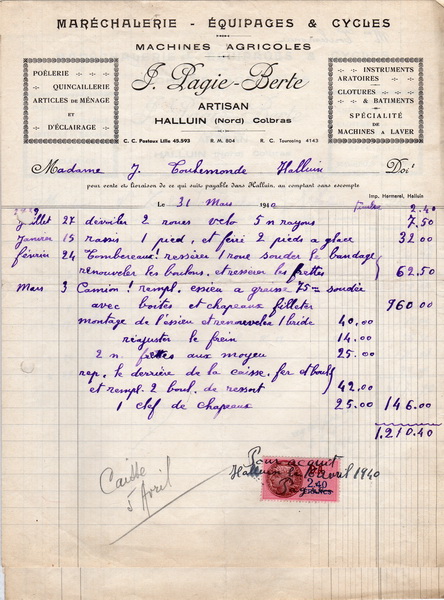 MARÉCHALERIE - ÉQUIPAGES & CYCLES
MACHINES AGRICOLES
POÊLERIE
QUINCAILLERIE
ARTICLES DE MÉNAGE
ET
D'ÉCLAIRAGE
J. Pagie-Berte
ARTISAN
HALLUIN (Nord) Colbras
C. C. Postaux Lille 45.593 R. M. 804 R. C. Tourcoing 4143
INSTRUMENTS
ARATOIRES
CLOTURES
& BATIMENTS
SPÉCIALITÉ
DE
MACHINES A LAVER
Madame J. Halluin Doit
pour vente et livraison de ce qui suit payable dans Halluin, au comptant sans escompte
Imp. Hermerel, Halluin
Le 31 Mars 1940 Timbre 2.40
1939
Juillet 27 dévoiler 2 roues velo 5 n rayons 7.50
Janvier 15 rassis 1 pied, et ferré 2 pieds a glace 32.00
février 24 Tombereau! resserer 1 roue souder le bandage
renouveler les boulons, et resserer les frettes 62.50
Mars 3 Camion! rempl. essieu a graisse 75 = soudée
avec boites et chapeaux filleter 960.00
montage de l'essieu et renouveler 1 bride 40.00
réajuster le frein 14.00
2 n. frettes aux moyeu 25.00
rep. le derrière de la caisse, fer et boul
et rempl. 2 boul. de ressort 42.00
1 clef de chapeaux 25.00 146.00
1.210.40
Pour acquit
Halluin le 18 avril 1940
Pagie
2.40
FRANCS
Caisse
5 Avril